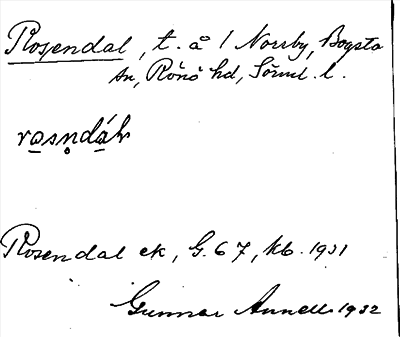 Rosendal, t. å 1 Norrby, Bogsta
sn, Rönö hd, Södml. l.
rosndáɫ
Rosendal ek, G. 67, kb. 1931
Gunnar Annell 1932